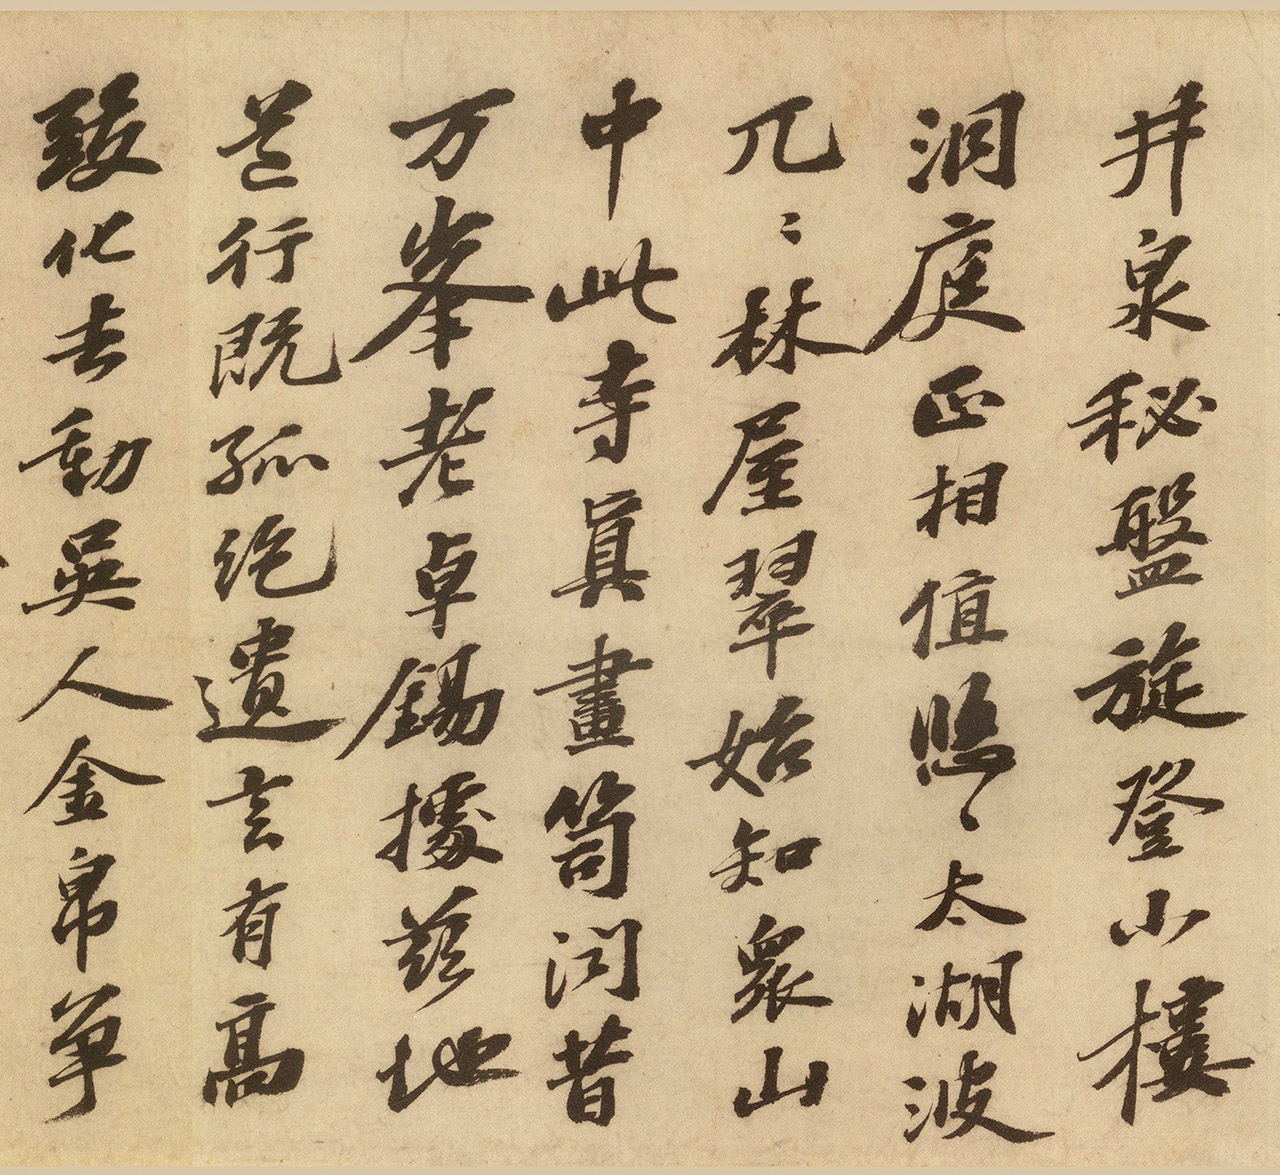 井泉秘盤旋登小樓
洞庭正相值照〻太湖波
兀〻林屋翠始知衆山
中此寺真畫笥问昔
万峯老卓錫據兹地
道行既孤絶遺言有高
致化去動吳人金帛争